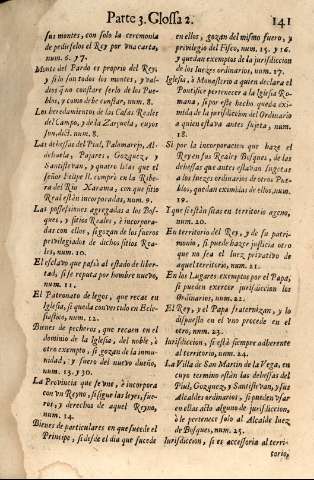 Parte 3. Glossa 2. 141
sus montes, con solo la ceremonia
de pedirselos el Rey por vna carta,
num. 6. y 7.
Monte del Pardo es proprio del Rey,
y si lo son todos los montes, y val-
dios que no constare serlo de los Pue-
blos, y como debe constar, num. 8.
Los heredamientos de las Casas Reales
del Campo, y de la Zarçuela, cuyos
son, dict. num. 8.
Las dehessas del Piul, Palomarejo, Al-
dehuela, Pajares, Gozquez, y
Santistevan, y quatro islas que el
señor Felipe II. comprò en la Ribe-
ra del Rio Xarama, con que sitio
Real estàn incorporadas, num. 9.
Las possessiones agregadas a los Bos-
ques, y sitios Reales, è incorpora-
das con ellos, si gozan de los fueros
privilegiados de dichos sitios Rea-
les, num. 10.
El esclavo que passa al estado de liber-
tad, si se reputa por hombre nuevo,
num. 11.
El Patronato de legos, que recae en
Iglesia, si queda convertido en Ecle-
siastico, num. 12.
Bienes de pecheros, que recaen en el
dominio de la Iglesia, del noble, ù
otro exempto, si gozan de la inmu-
nidad, y fuero del nuevo dueño,
num. 13. y 30.
La Provincia que se vne, è incorpora
con vn Reyno, si sigue las leyes, fue-
ros, y derechos de aquel Reyno,
num. 14.
Bienes de particulares en que sucede el
Principe, si desde el dia que sucede
en ellos, gozan del mismo fuero, y
privilegio del Fisco, num. 15. y 16.
y quedan exemptos de la jurisdiccion
de los Iuezes ordinarios, num. 17.
Iglesia, ò Monasterio a quien declara el
Pontifice pertenecer a la Iglesia Ro-
mana, si por este hecho queda exi-
mida de la jurisdiccion del Ordinario
a quien estava antes sujeta, num.
18.
Si por la incorporacion que haze el
Rey en sus Reales Bosques, de las
dehessas que antes estavan sugetas
a los Iuezes ordinarios de otros Pue-
blos, quedan eximidas de ellos, num.
19.
Y que si estàn sitas en territorio ageno,
num. 20.
En territorio del Rey, y de su patri-
monio, si puede hazer justicia otro
que no sea el Iuez privativo de
aquel territorio, num. 21.
En los Lugares exemptos por el Papa,
si pueden exercer jurisdiccion los
Ordinarios, num. 22.
El Rey, y el Papa fraternizan, y lo
dispuesto en el vno procede en el
otro, num. 23.
Iurisdiccion, si està siempre adherente
al territorio, num. 24.
La Villa de San Martin de la Vega, en
cuyo termino estàn las dehessas del
Piul, Gozquez, y Santistevan, y sus
Alcaldes ordinarios, si pueden vsar
en ellas acto alguno de jurisdiccion,
ò le pertenece solo al Alcalde Iuez
de Bosques, num. 25.
Iurisdiccion, si es accessoria al terri-
torio,